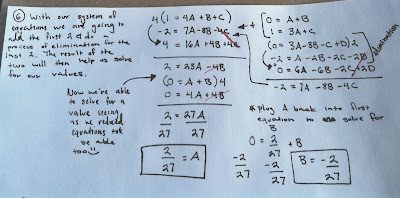 ⑥ With our system of
equations we are going to
add the first 2 & do a
process of elimination for the
last 2. The result of the
two will then help us solve
for our values.
Now we're able
to solve for a
value seeing
as we reduced
equations tot
be able
too
4(1 = 4A + B + C)
-2 = 7A - 8B - 4C
4 = 16A + 4B + 4C
2 = 23A - 4B
(0 = A + B) 4
0 = 4A + 4B
2 = 27A
27 27
2/27 = A
0 = A + B
+ 1 = 3A + C
(0 = 3A - 3B - C + D) 2
-2 = A - 2B - 2C - 2D
0 = 6A - 6B - 2C + 2D
elimination
-2 = 7A - 8B - 4C
* plug A back into first
equation to solve for
B
0 = 2/27 + B
-2/27 -2/27
B = -2/27